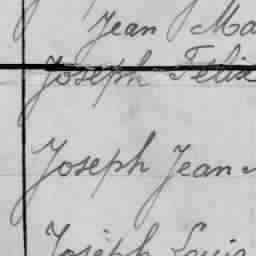 Jean Ma
Joseph Felix
Joseph Jean
Joseph Louis